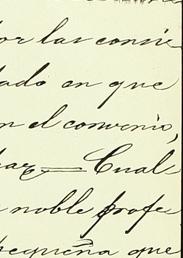 or las convi
tado en que
n el convenio,
par = Cual
noble profe
pequeña que